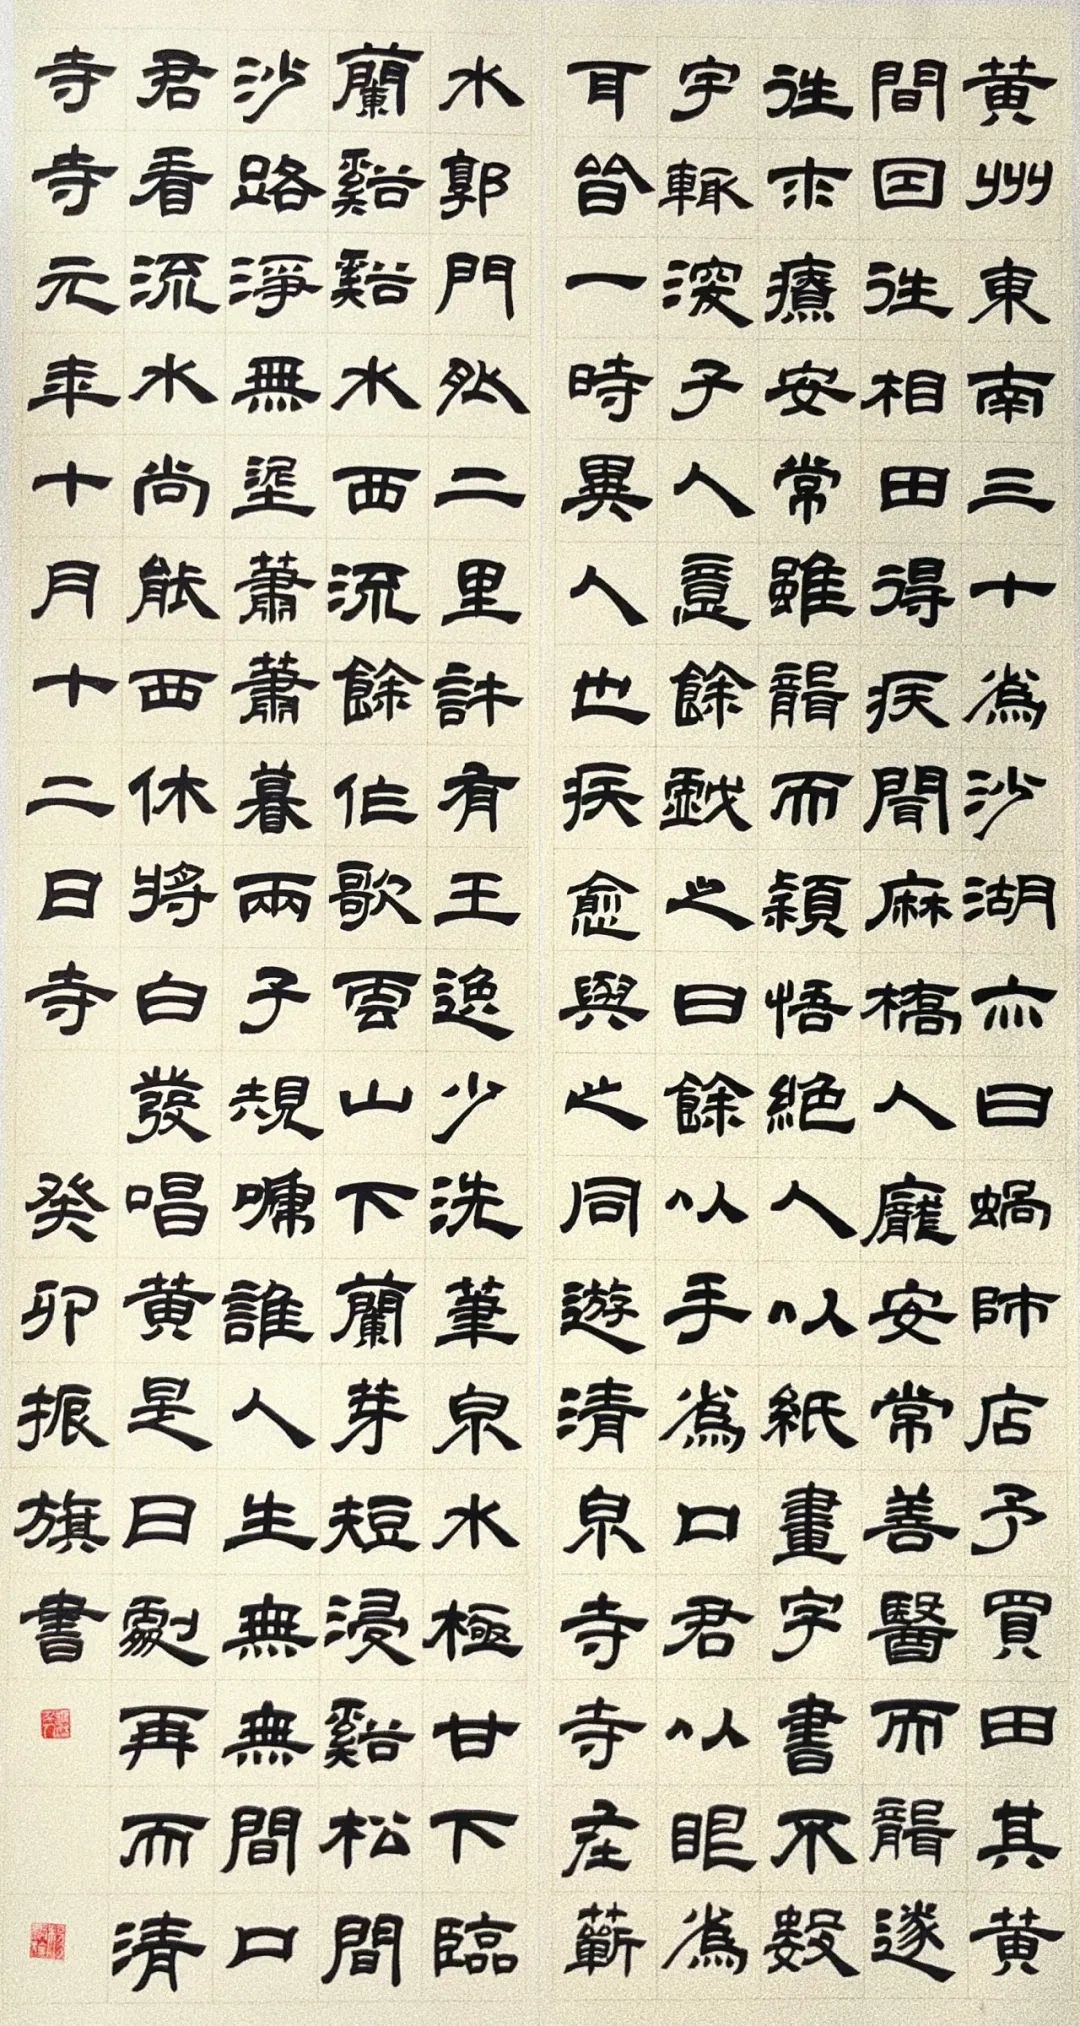 黄州東南三十為沙湖亦曰蝸師店予買田其黄
間因往相田得疾聞麻橋人龐安常善醫而聾遂
往求療安常雖聾而穎悟絕人以紙畫字書不數
字輒深子人意餘戲之曰餘以手為口君以眼為
耳皆一時異人也疾愈與之同遊清泉寺寺在蘄
水郭門外二里許有王逸少洗筆泉水極甘下臨
蘭谿谿水西流餘作歌雲山下蘭芽短浸谿松間
沙路淨無埿蕭蕭暮雨子規啼誰人生無無間口
君看流水尚能西休將白發唱黄是日劇再而清
寺寺元年十月十二日寺 癸卯振旗書